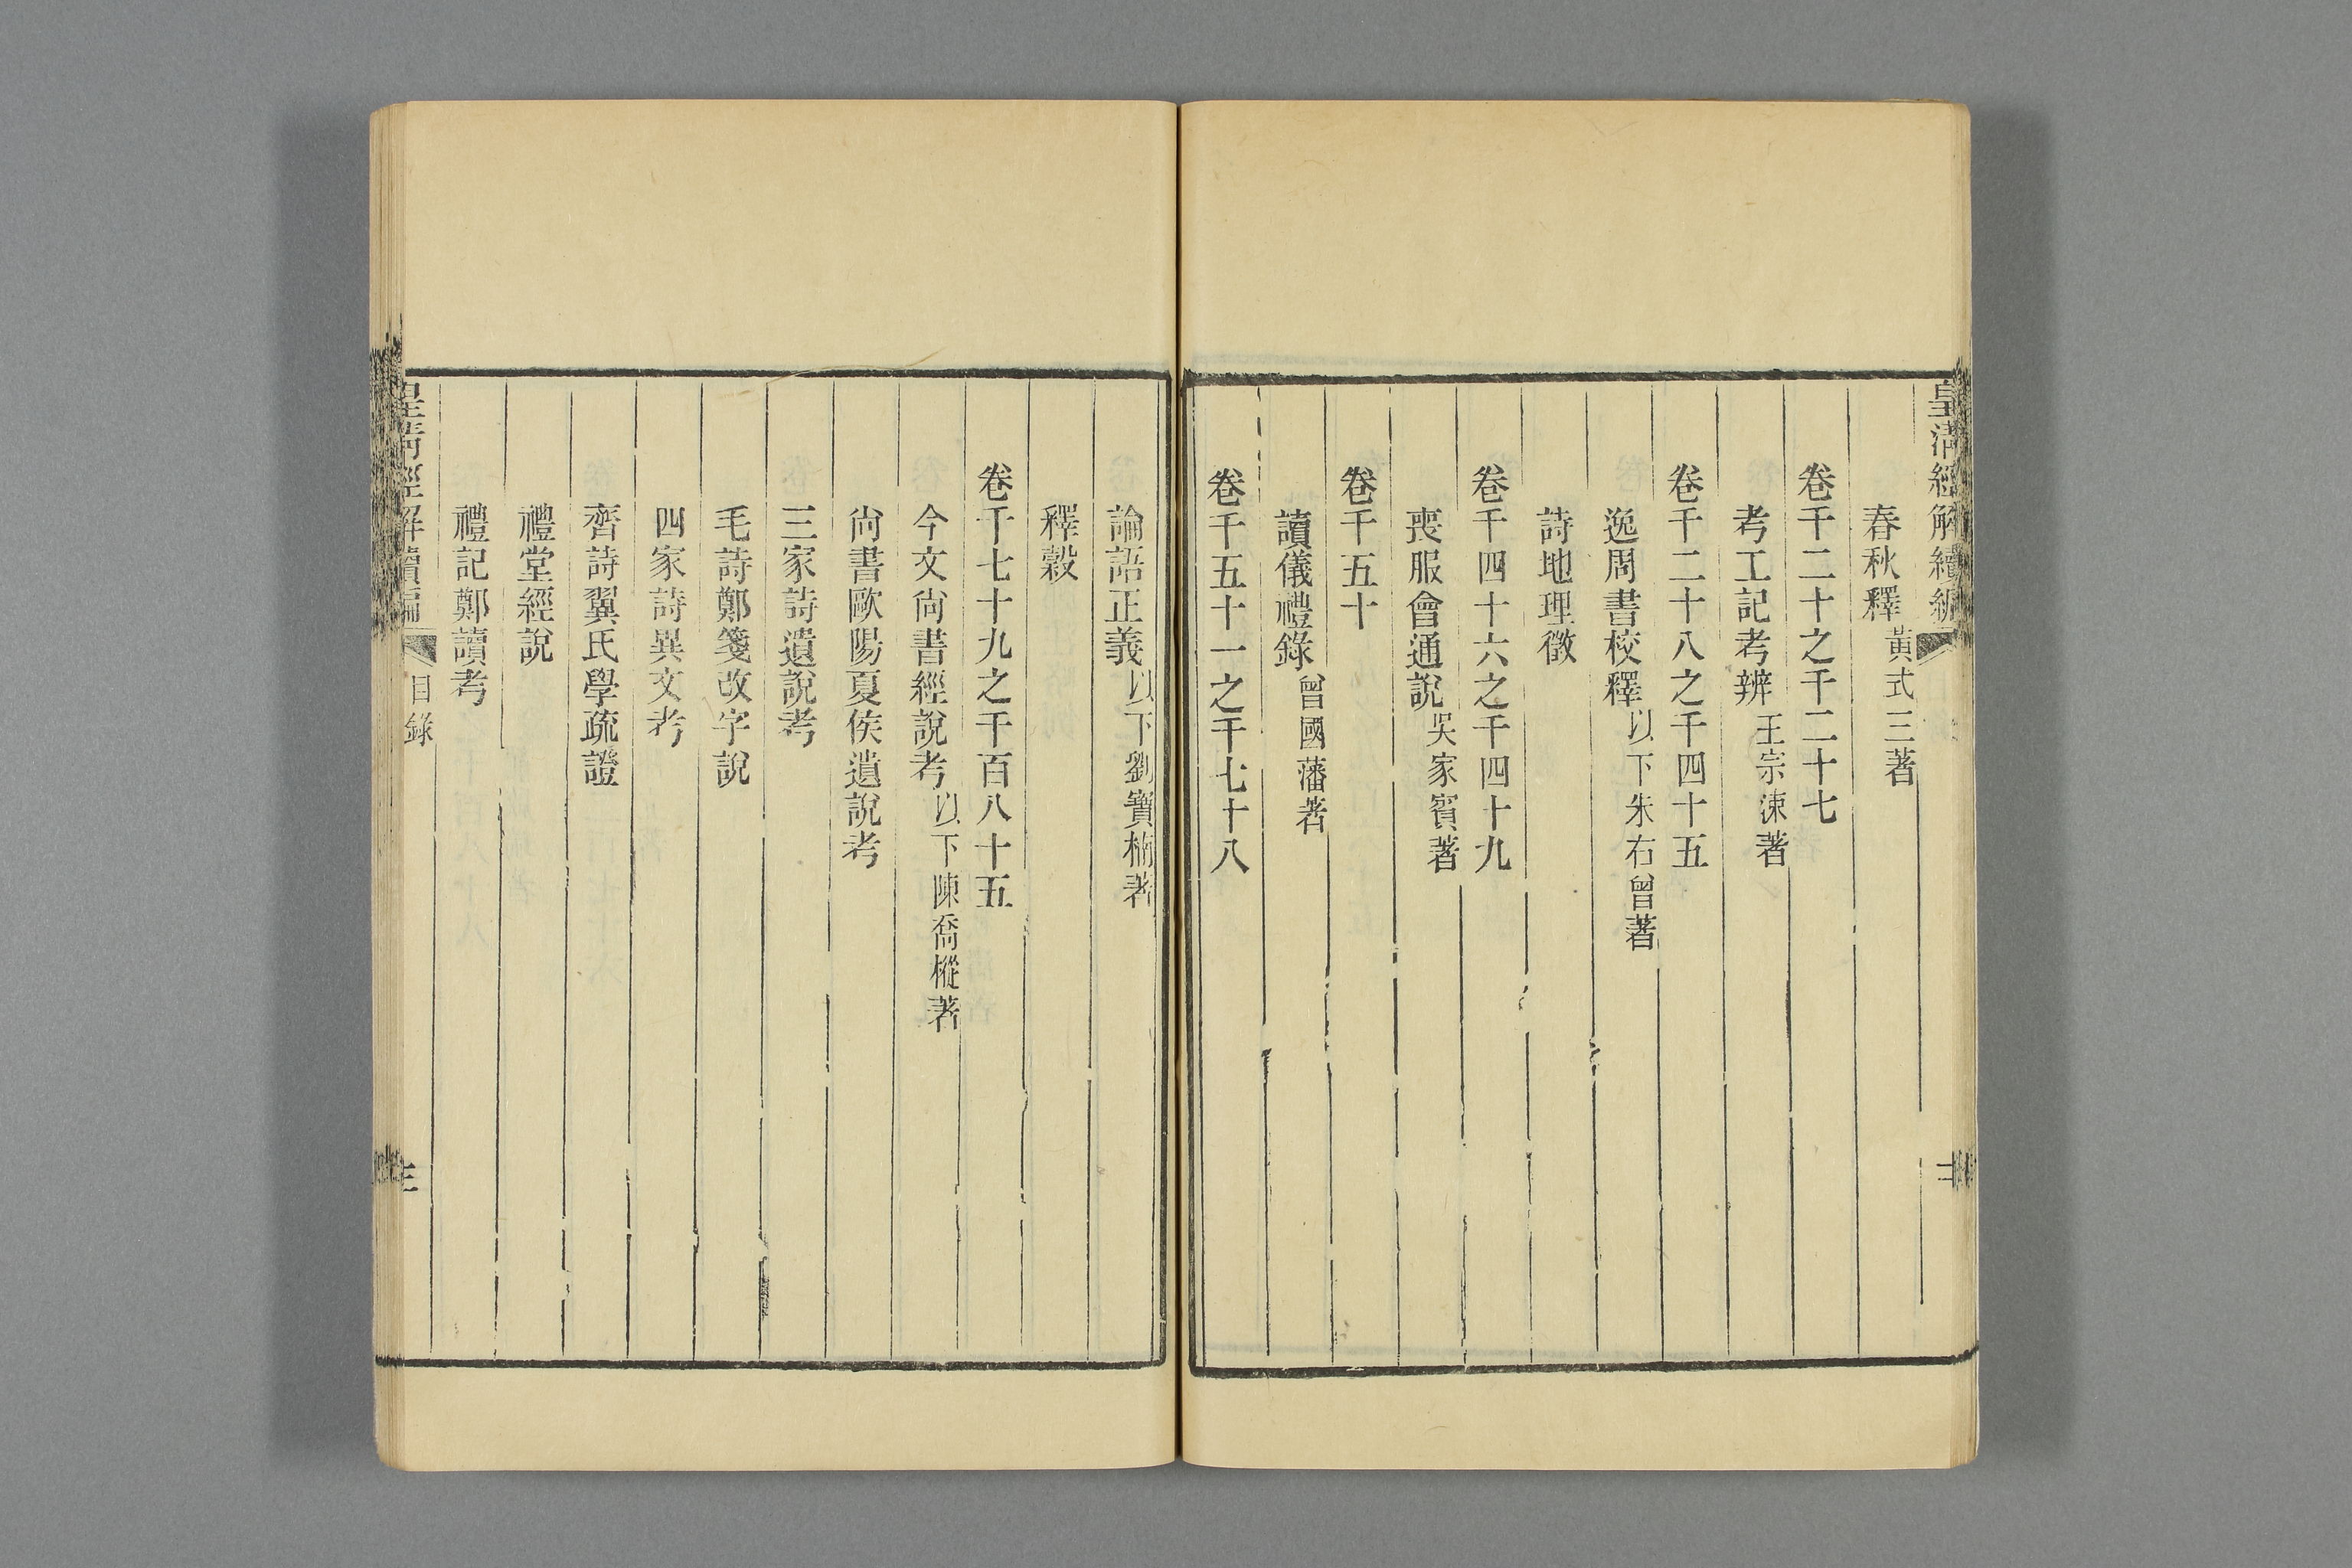 皇清經解續編
春秋釋 黃式三著
卷千二十之千二十七
考工記考辨 王宗涑著
卷千二十八之千四十五
逸周書校釋 以下朱右曾著
詩地理徵
卷千四十六之千四十九
喪服會通說 吳家賓著
卷千五十
讀儀禮錄 曾國藩著
卷千五十一之千七十八
論語正義 以下劉寶楠著
釋穀
卷千七十九之千百八十五
今文尙書經說考 以下陳喬樅著
尙書歐陽夏侯遺說考
三家詩遺說考
毛詩鄭箋改字說
四家詩異文考
齊詩翼氏學疏證
禮堂經說
禮記鄭讀考
皇清經解續編 目錄